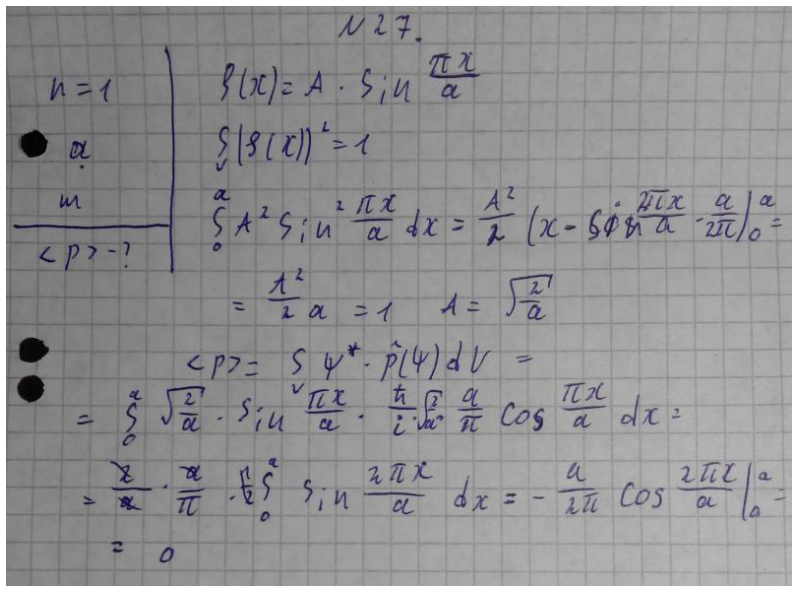 N 27.
n = 1
a
m
<p> - ?
φ(x) = A · Sin πx/a
∫_V (φ(x))² = 1
∫₀ᵃ A² Sin² πx/a dx = A²/2 (x - Sin 2πx/a · a/2π |₀ᵃ =
= A²/2 a = 1 A = √(2/a)
<p> = ∫_V ψ* · p̂(ψ) dV =
= ∫₀ᵃ √(2/a) · Sin πx/a · ħ/i · √(2/a) a/π Cos πx/a dx =
= 2/a · a/π · ∫₀ᵃ Sin 2πx/a dx = - a/2π Cos 2πx/a |₀ᵃ =
= 0